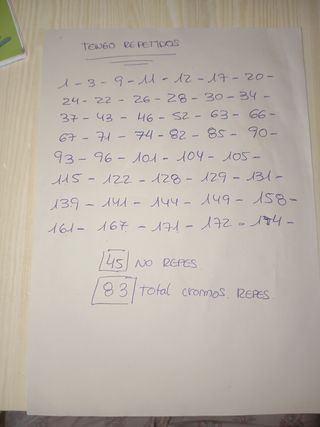 TENGO REPETIDOS
1 - 3 - 9 - 11 - 12 - 17 - 20 -
24 - 22 - 26 - 28 - 30 - 34 -
37 - 43 - 46 - 52 - 63 - 66 -
67 - 71 - 74 - 82 - 85 - 90 -
93 - 96 - 101 - 104 - 105 -
115 - 122 - 128 - 129 - 131 -
139 - 141 - 144 - 149 - 158 -
161 - 167 - 171 - 172 - 174 -
45 NO REPES.
83 Total cromos. REPES.